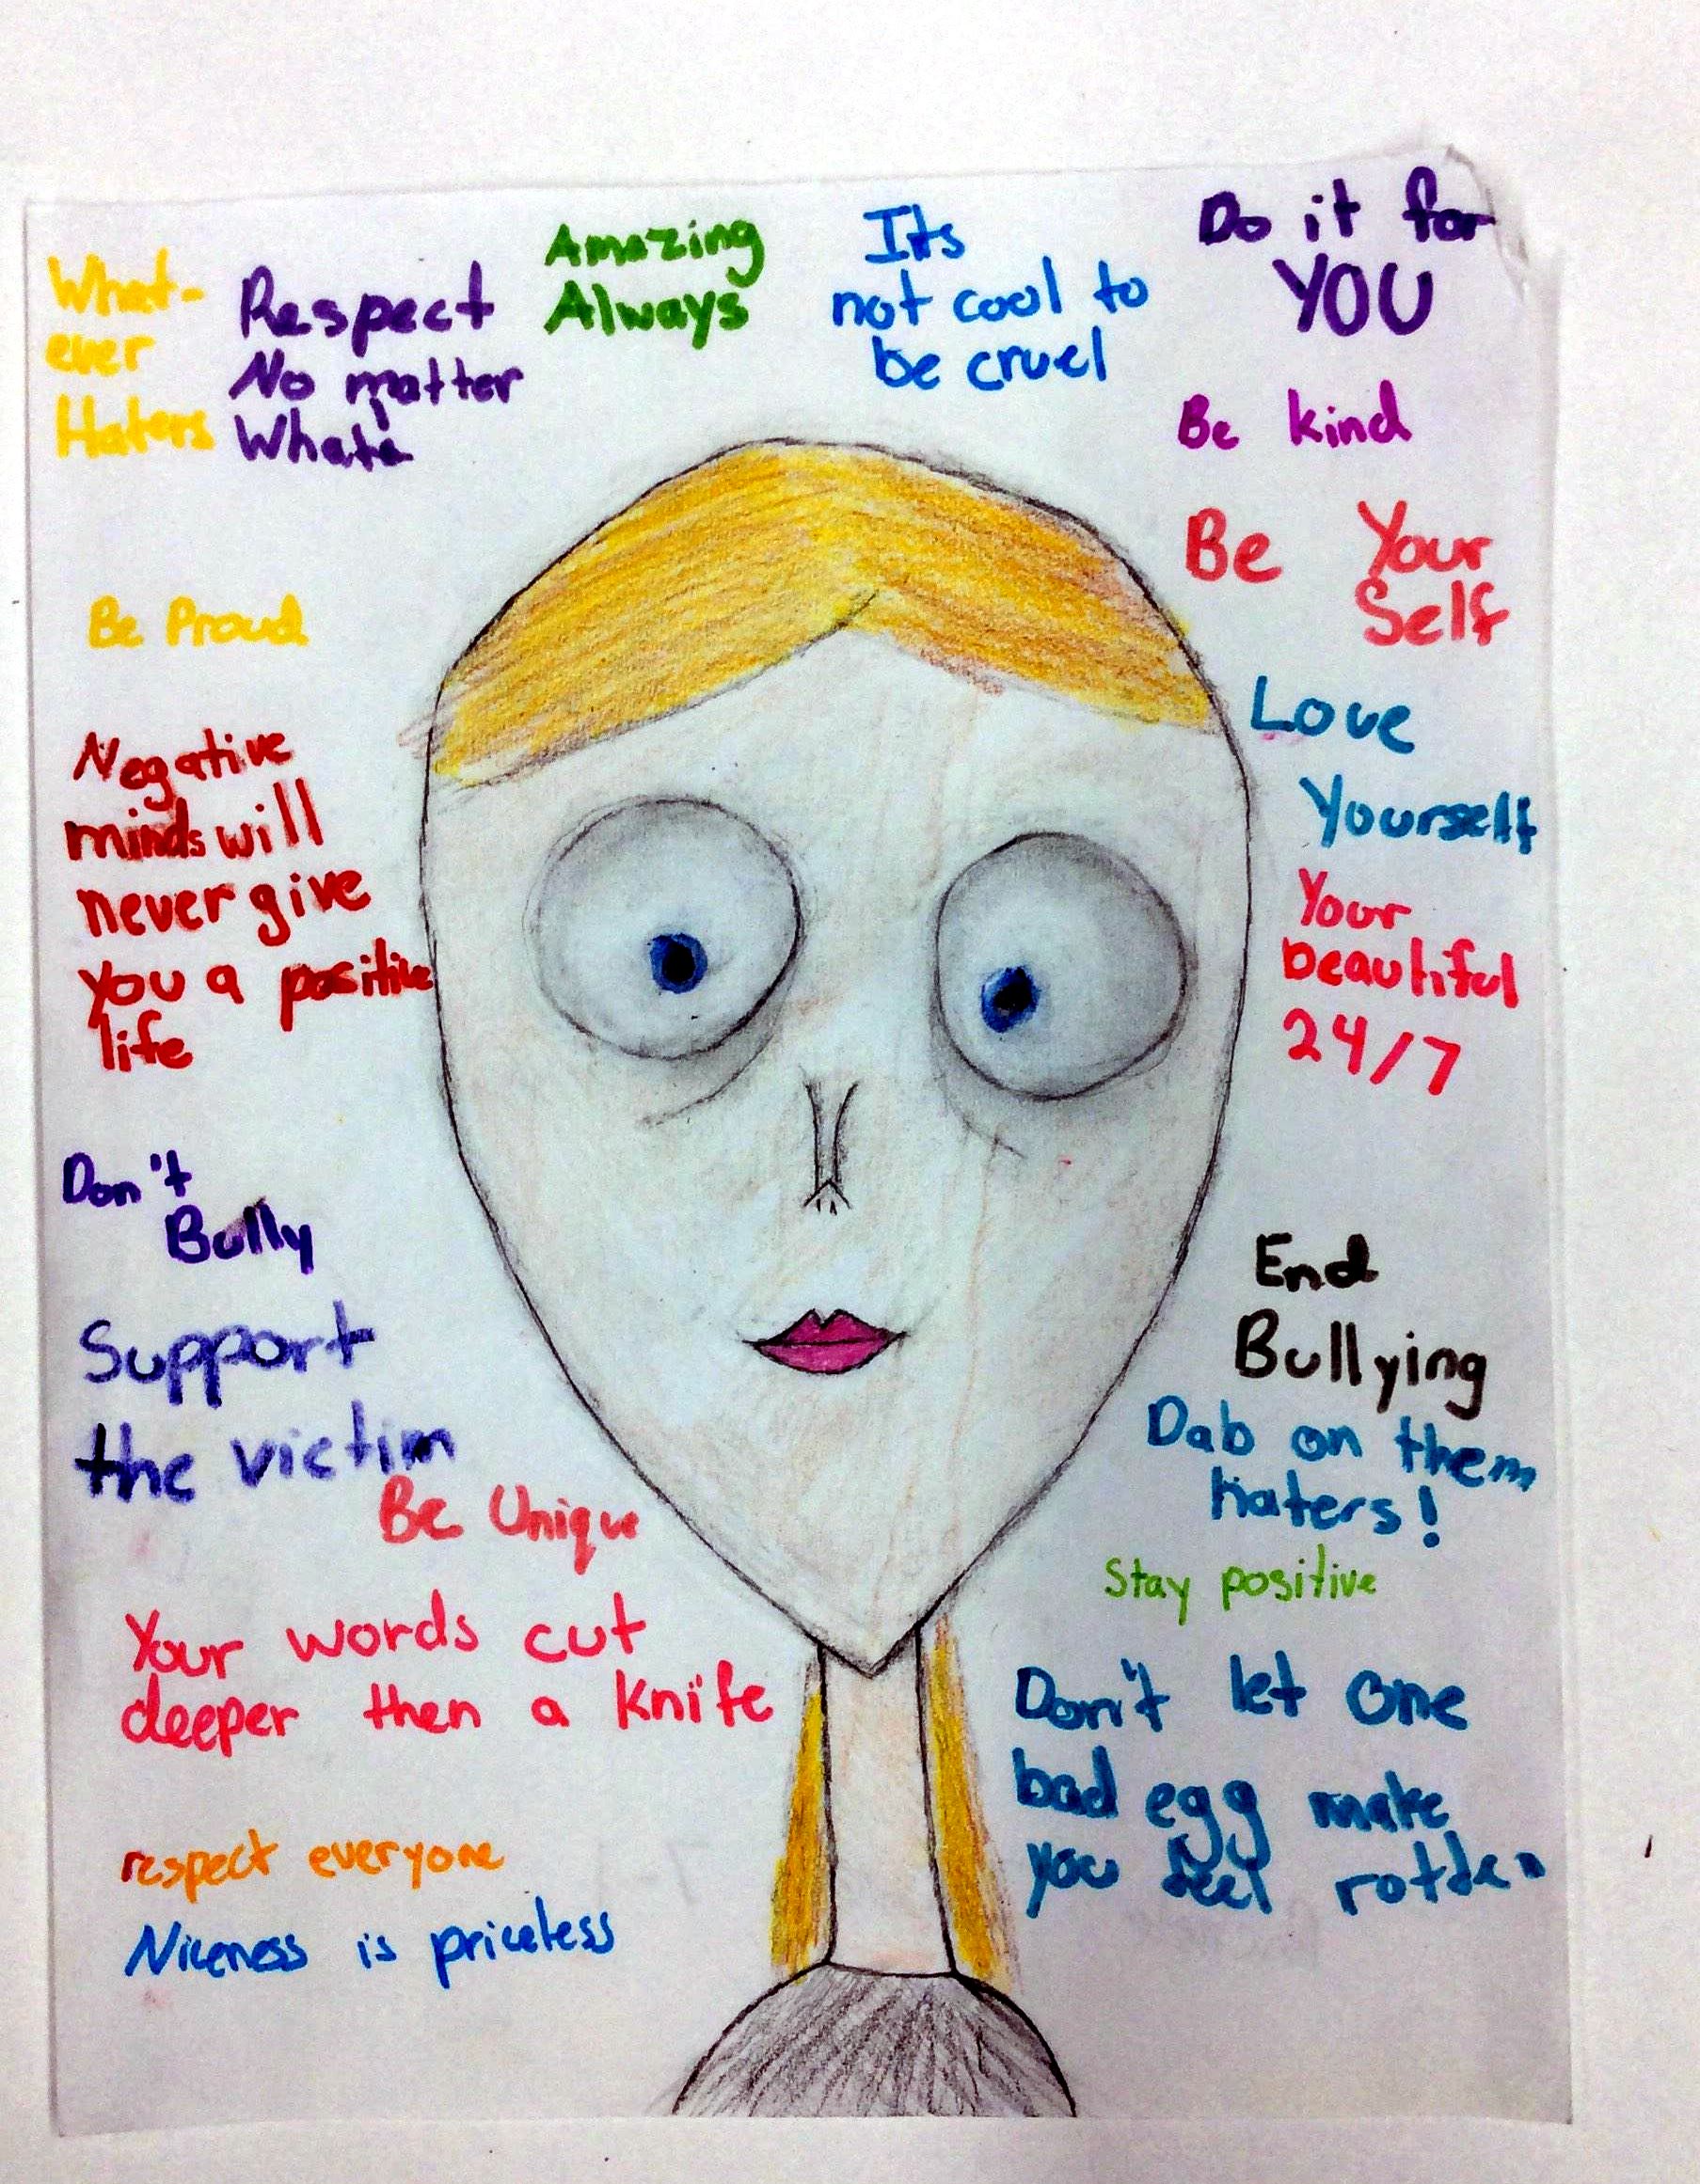 What-
ever
Haters
Respect
No matter
What
Amazing
Always
Its
not cool to
be cruel
Do it for
YOU
Be kind
Be Your
Self
Love
Yourself
Your
beautiful
24/7
Be Proud
Negative
minds will
never give
you a positive
life
Don't
Bully
Support
the victim
Be Unique
Your words cut
deeper then a knife
respect everyone
Niceness is priceless
End
Bullying
Dab on them
haters!
Stay positive
Don't let one
bad egg make
you feel rotten